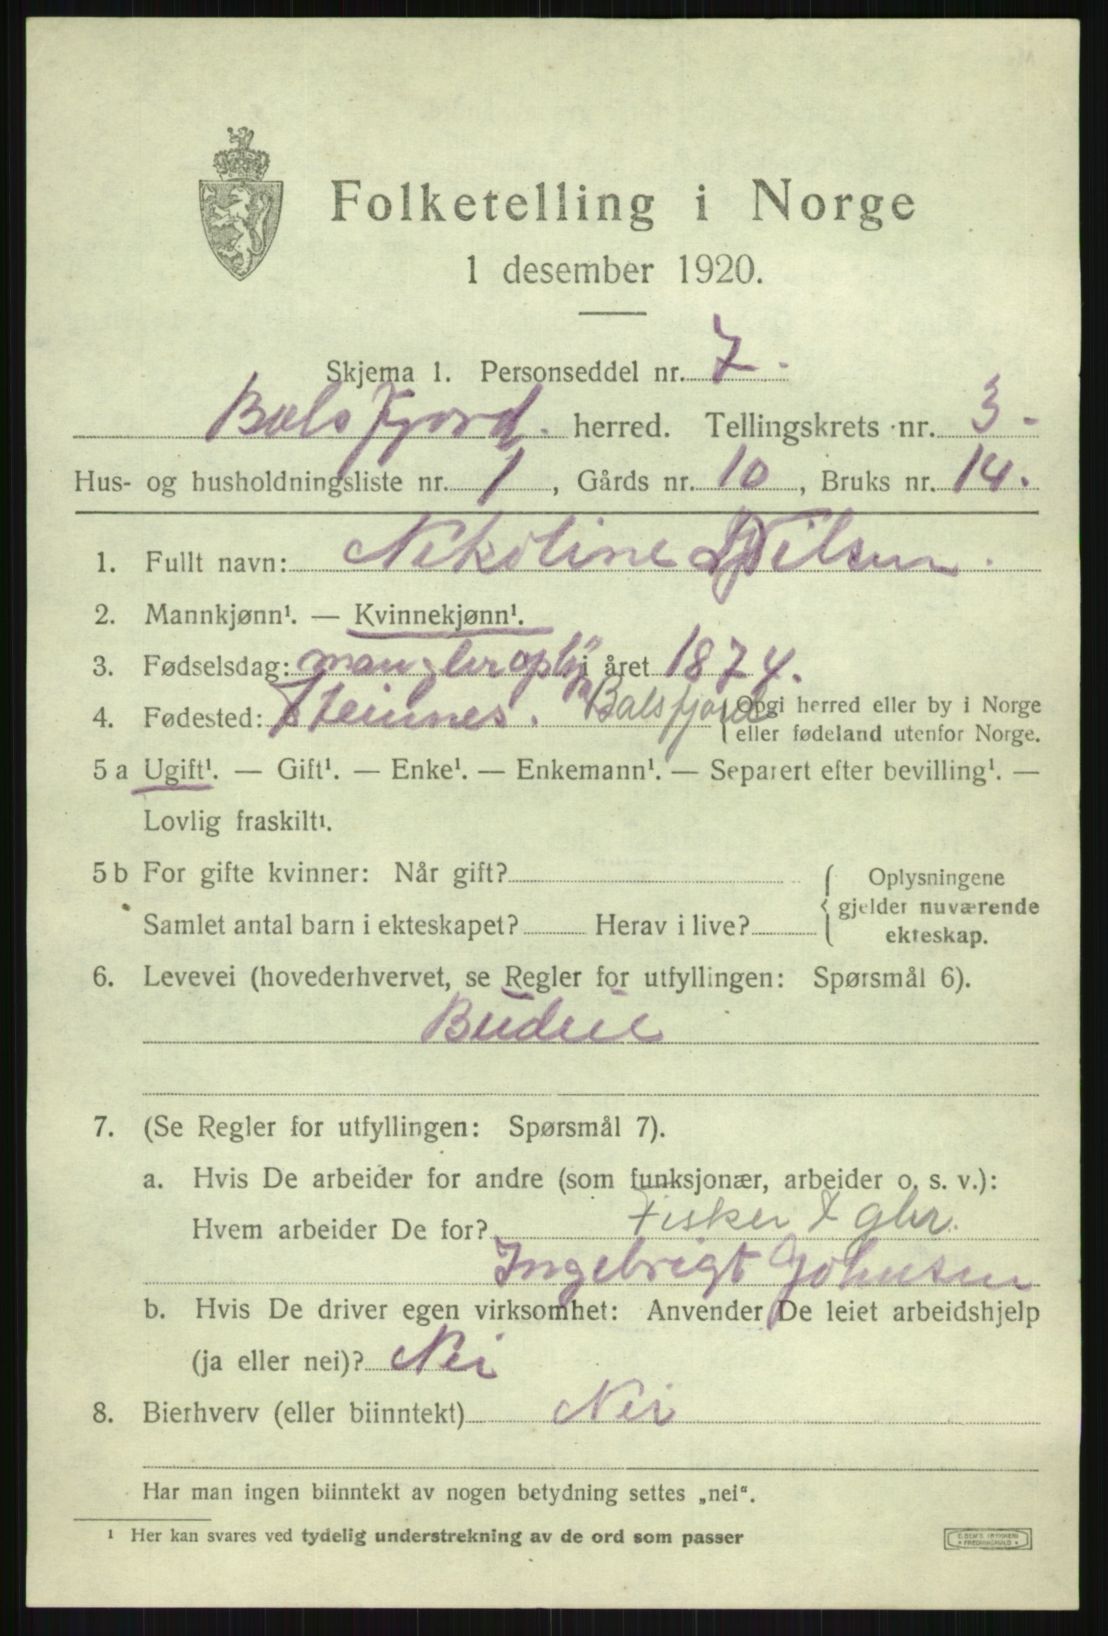 Folketelling i Norge
1 desember 1920.
Skjema 1. Personseddel nr. 7.
Balsfjord. herred. Tellingskrets nr. 3.
Hus- og husholdningsliste nr. 1, Gårds nr. 10, Bruks nr. 14.
1. Fullt navn: Nikoline Nilsen
2. Mannkjønn¹. — Kvinnekjønn¹.
3. Fødselsdag: mangler opl. i året 1874.
4. Fødested: Steinnes. Balsfjord { Opgi herred eller by i Norge
eller fødeland utenfor Norge.
5 a Ugift¹. — Gift¹. — Enke¹. — Enkemann¹. — Separert efter bevilling¹. —
Lovlig fraskilt¹.
5 b For gifte kvinner: Når gift?
Samlet antal barn i ekteskapet? Herav i live?
{ Oplysningene
gjelder nuværende
ekteskap.
6. Levevei (hovederhvervet, se Regler for utfyllingen: Spørsmål 6).
Budeie
7. (Se Regler for utfyllingen: Spørsmål 7).
a. Hvis De arbeider for andre (som funksjonær, arbeider o. s. v.):
Hvem arbeider De for? Fisker & gbr.
Ingebrigt Johnsen
b. Hvis De driver egen virksomhet: Anvender De leiet arbeidshjelp
(ja eller nei)? Nei
8. Bierhverv (eller biinntekt) Nei
Har man ingen biinntekt av nogen betydning settes „nei“.
¹ Her kan svares ved tydelig understrekning av de ord som passer